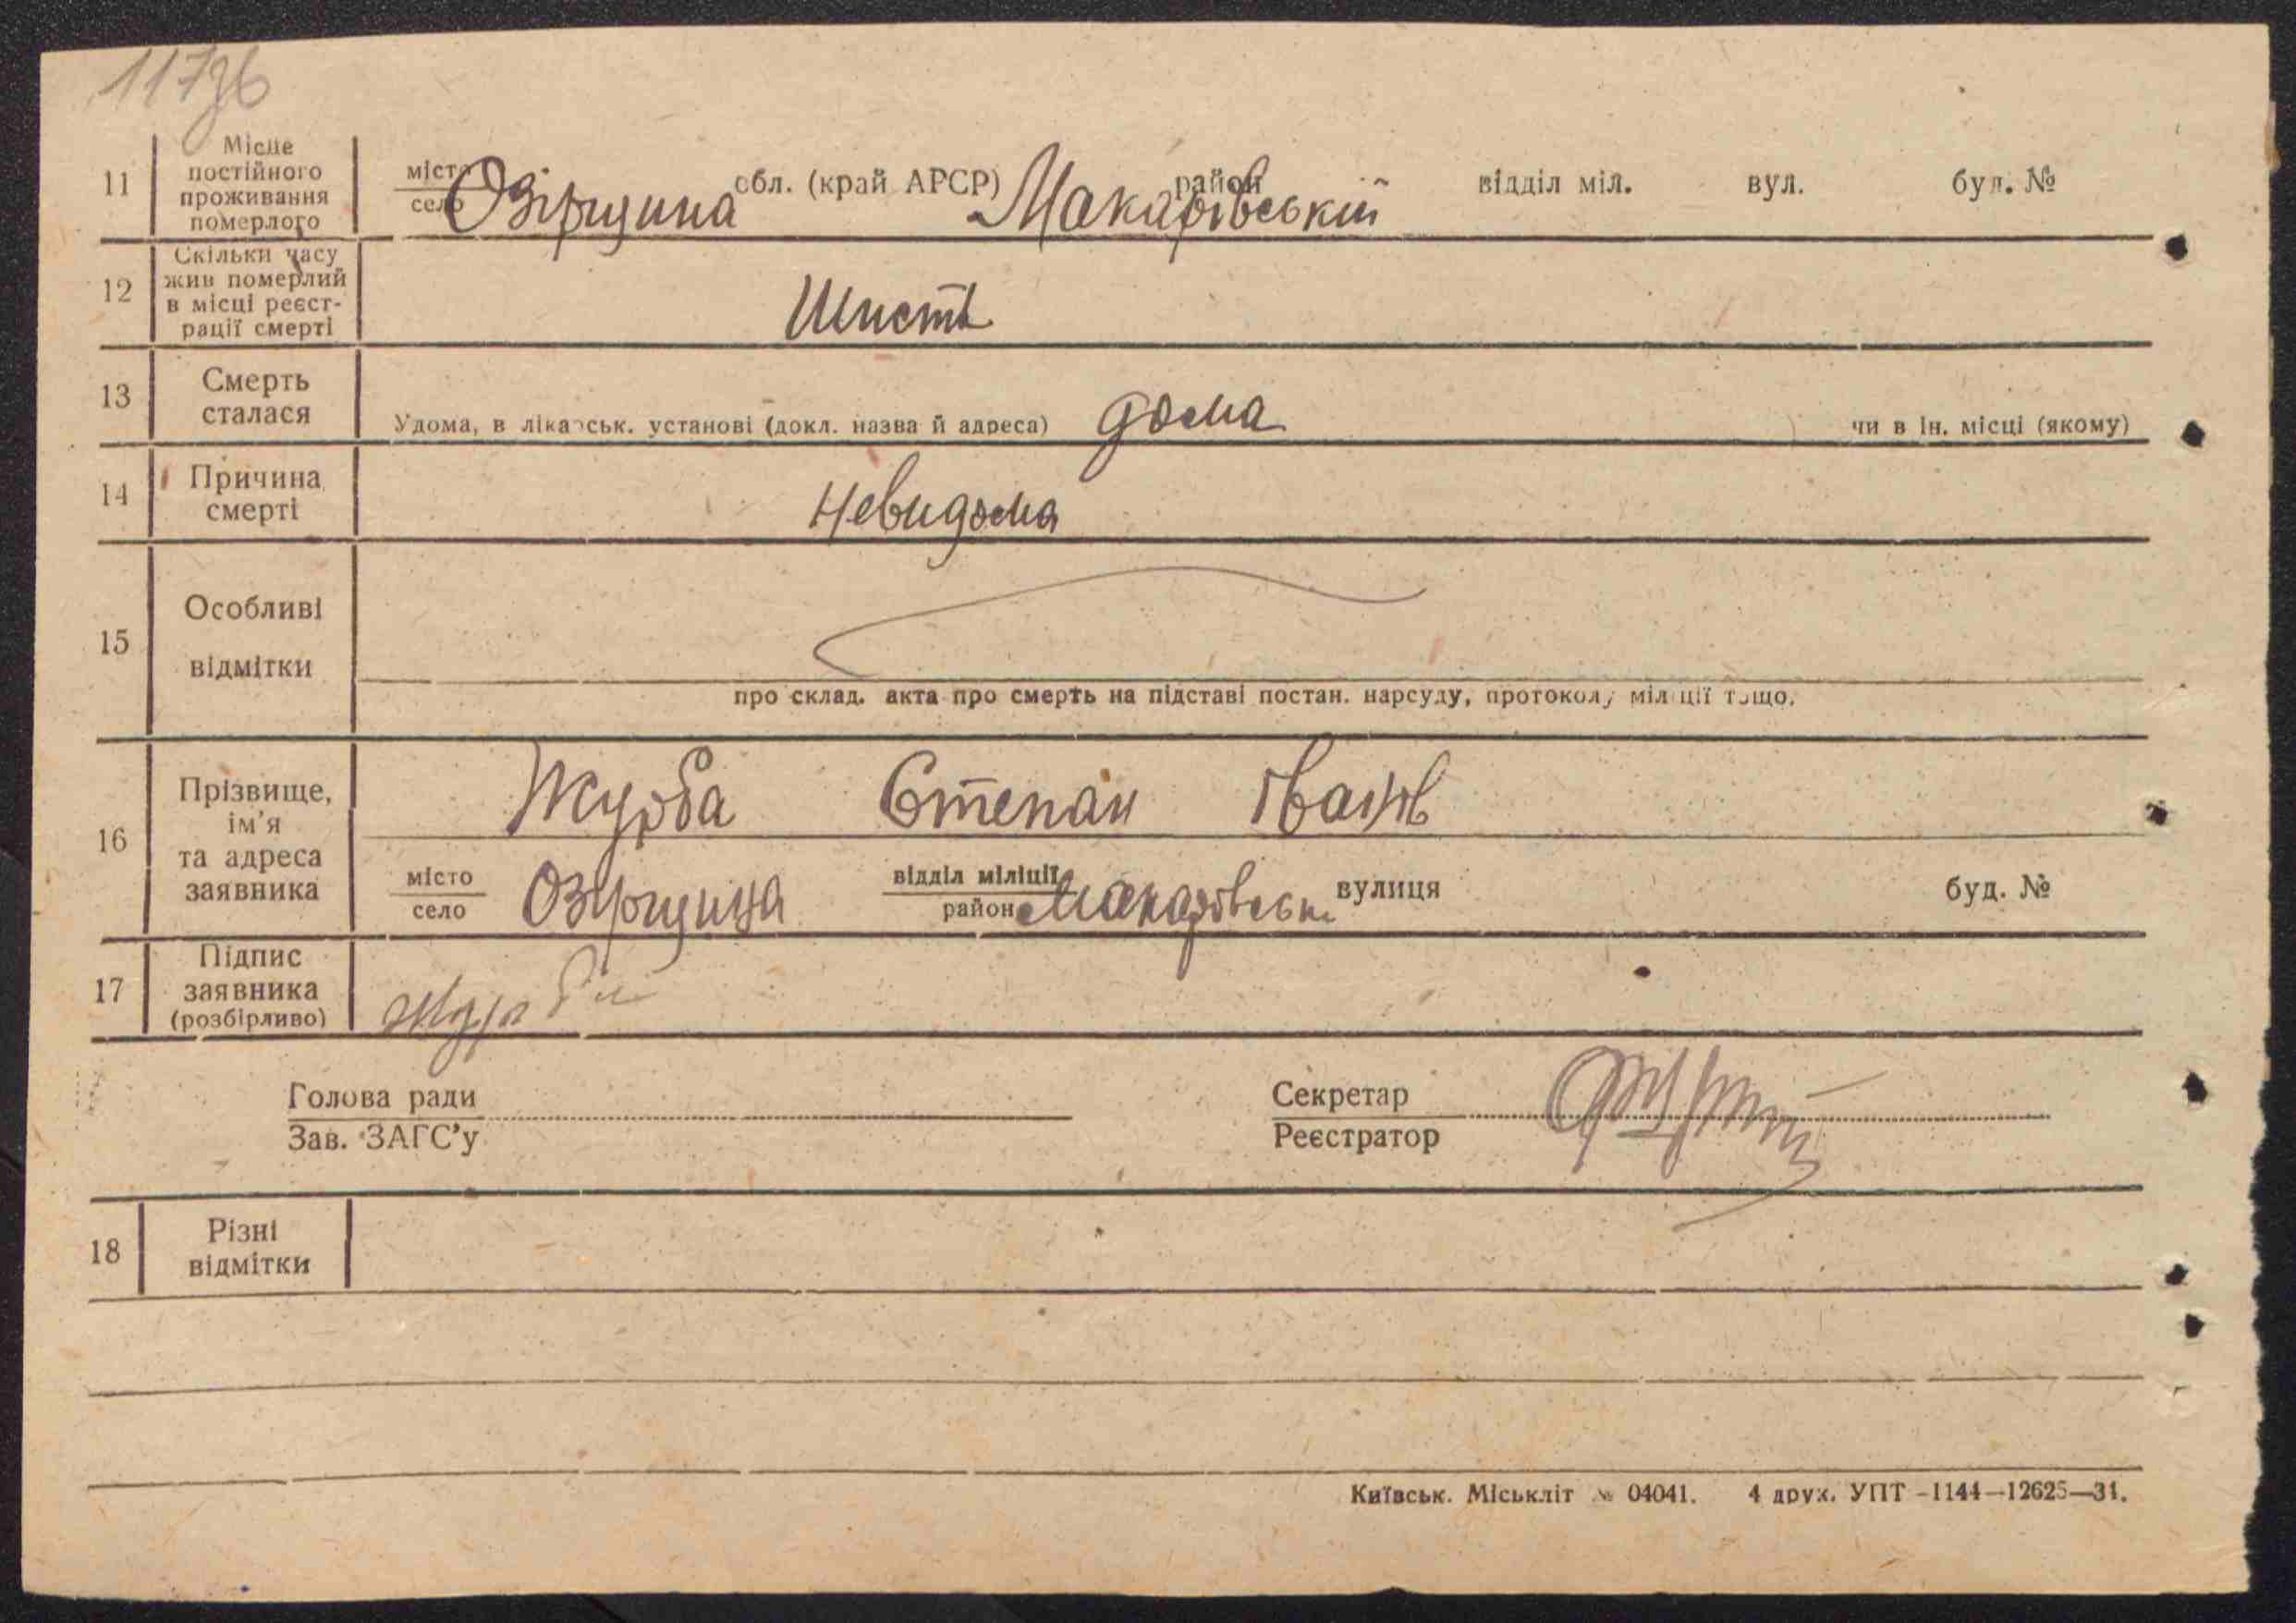 117зб
11 Місце постійного проживання померлого місто село Озірщина обл. (край АРСР) район Макарівській відділ міл. вул. буд. №
12 Скільки часу жив померлий в місці реєстрації смерті Шисть
13 Смерть сталася Удома, в лікарськ. установі (докл. назва й адреса) дома чи в ін. місці (якому)
14 Причина смерті невидома
15 Особливі відмітки
про склад. акта про смерть на підставі постан. нарсуду, протоколу міліції тощо.
16 Прізвище, ім'я та адреса заявника Журба Степан Іванів
місто село Озірщина відділ міліції район Макарівськ. вулиця буд. №
17 Підпис заявника (розбірливо) Журба
Голова ради Секретар
Зав. ЗАГС'у Реєстратор
18 Різні відмітки
Київськ. Міськліт № 04041. 4 друк. УПТ -1144-12625-31.